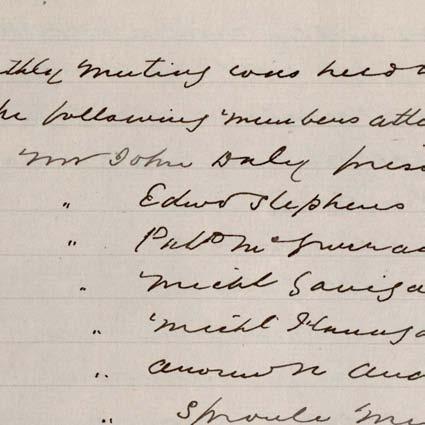 thly meeting was held
the following members atte
Mr John Daly presi
" Edwd Stephens
" Patk Mc
" Michl Saviga
" Michl Flanaga
" Andrew
" Sproule